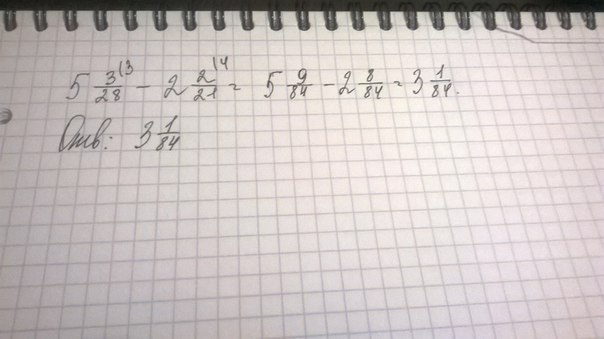 5 3\3/28 - 2 2\4/21 = 5 9/84 - 2 8/84 = 3 1/84.
Отв: 3 1/84